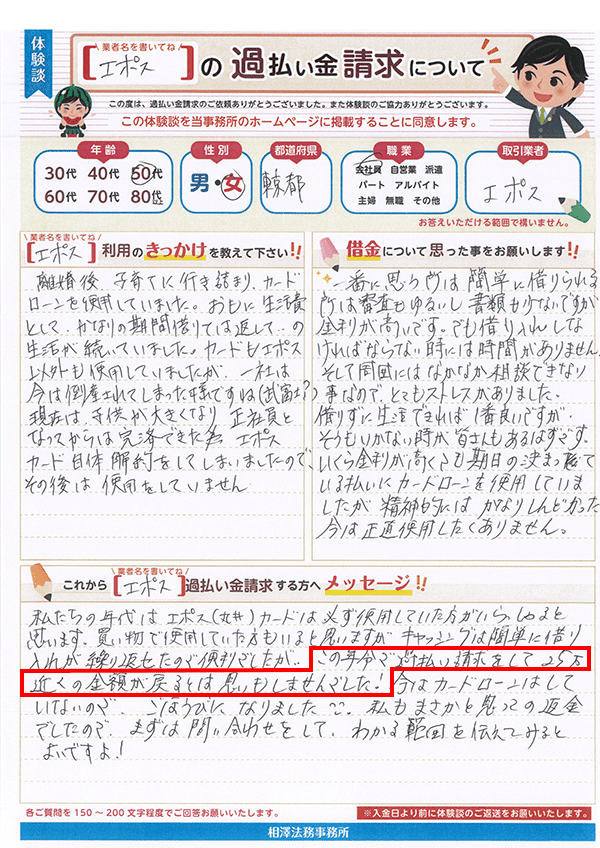 体験談
業者名を書いてね
[エポス]の過払い金請求について
この度は、過払い金請求のご依頼ありがとうございました。また体験談のご協力ありがとうございます。
この体験談を当事務所のホームページに掲載することに同意します。
年齢
30代 40代 50代
60代 70代 80代
性別
男・女
都道府県
東京都
職業
会社員 自営業 派遣
パート アルバイト
主婦 無職 その他
取引業者
エポス
お答えいただける範囲で構いません。
業者名を書いてね
[エポス]利用のきっかけを教えて下さい!!
離婚後、子育てに行き詰まり、カード
ローンを使用していました。おもに生活費
として、かなりの期間借りては返して‥の
生活が続いていました。カードもエポス
以外も使用していましたが、一社は
今は倒産されてしまった様ですね(武富士?)
現在は、子供が大きくなり正社員と
なってからは完済できた為 エポス
カード自体解約をしてしまいましたので
その後は使用をしていません
借金について思った事をお願いします!!
一番に思う所は簡単に借りられる
所は審査もゆるいし書類も少ないですが
金利が高いです。でも借り入れしな
ければならない時には時間がありません
そして周囲にはなかなか相談できない
事なので、とてもストレスがありました。
借りずに生活できれば1番良いですが、
そうもいかない時が皆さんもあるはずです。
いくら金利が高くても期日の決まって
いる払いにカードローンを使用していま
したが 精神的には かなりしんどかった
今は正直使用したくありません。
業者名を書いてね
これから[エポス]過払い金請求する方へメッセージ!!
私たちの年代はエポス(丸井)カードは必ず使用していた方がいらっしゃると
思います。買い物で使用していた方もいると思いますが キャッシングは簡単に借り
入れが繰り返せたので便利でしたが‥この年分で過払い請求をして25万
近くの金額が戻るとは思いもしませんでした!今はカードローンはして
いないので、ごほうびになりました 私もまさかと思っての返金
でしたので、まずは問い合わせをして、わかる範囲を伝えてみると
よいですよ!
各ご質問を150～200文字程度でご回答お願いいたします。
※入金日より前に体験談のご返送をお願いいたします。
相澤法務事務所